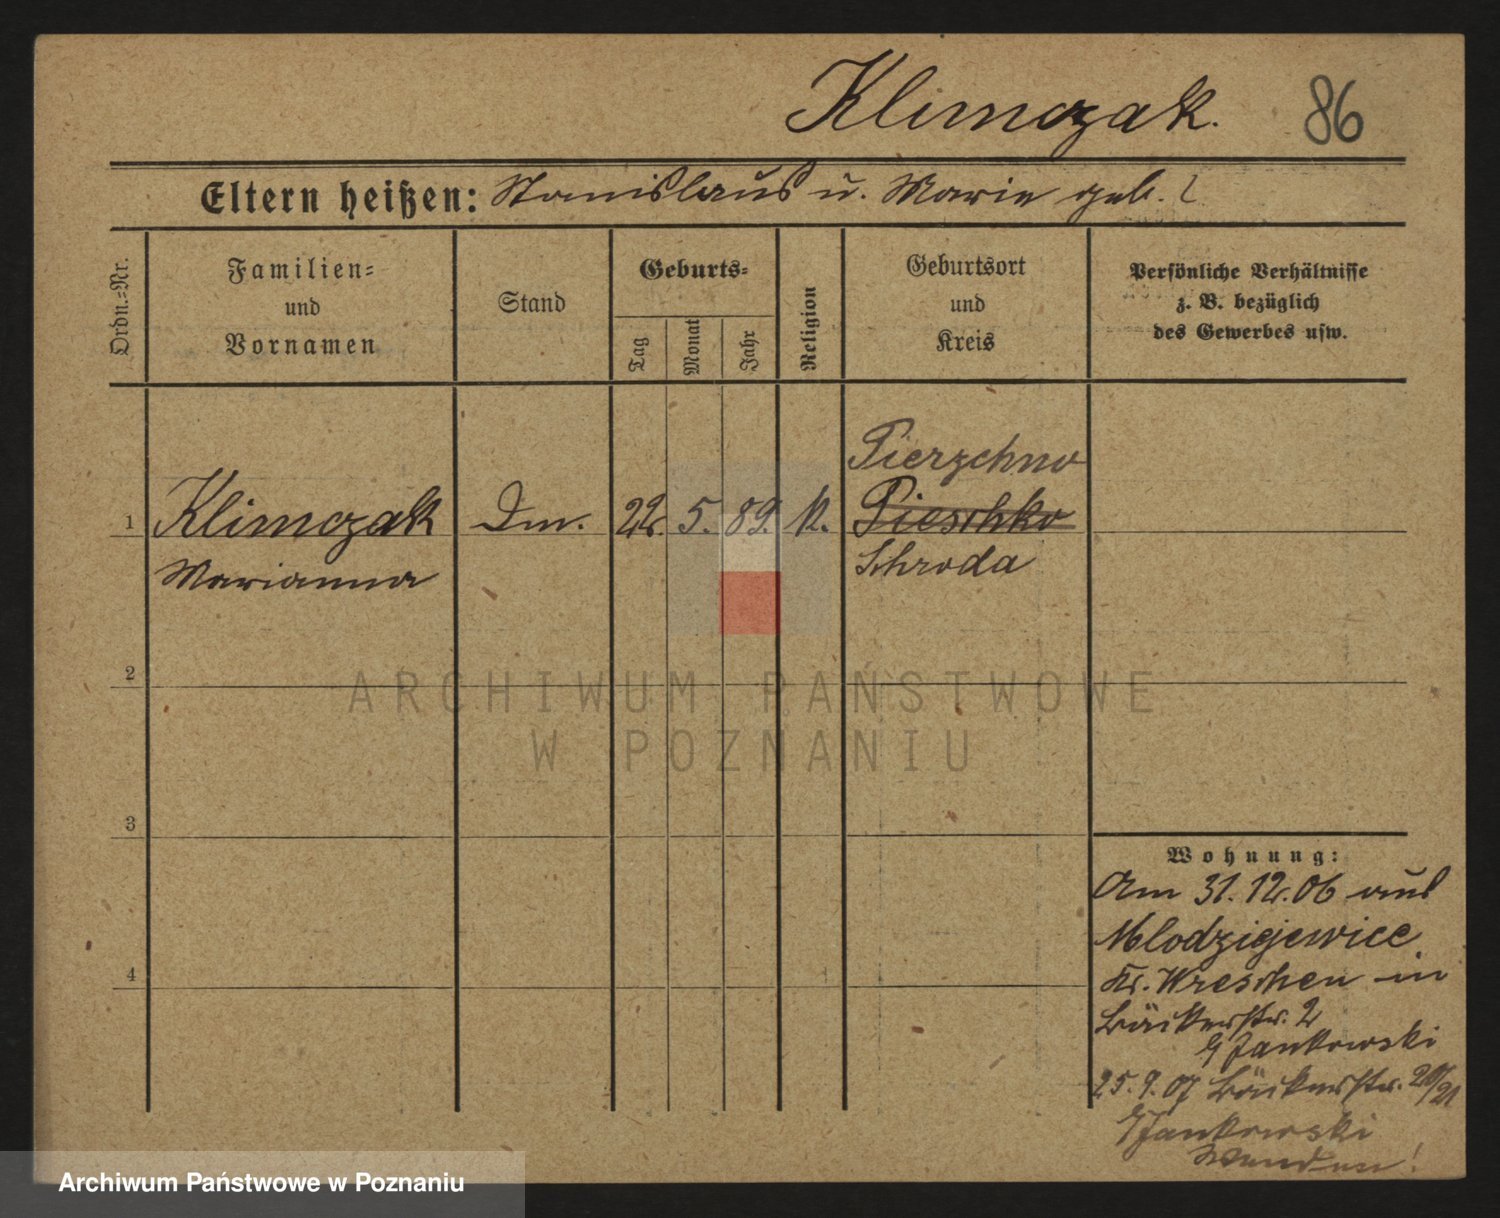 Klimczak. 86
Eltern heißen: Stanislaus u. Marie geb. ?
Ordn.=Nr.
Familien=
und
Vornamen
Stand
Geburts=
Tag
Monat
Jahr
Religion
Geburtsort
und
Kreis
Persönliche Verhältnisse
z. B. bezüglich
des Gewerbes usw.
Pierzchno
1 Klimczak Dm. 22. 5. 89. k. Pieschko
Marianna Schroda
2
3
4
Wohnung:
Am 31.12.06 aus
Mlodziejewice
Kr. Wreschen in
Bäckerstr. 2
b/ Jankowski
25.9.07 Bäckerstr. 20/21
b/ Jankowski
Wenden!
ARCHIWUM PAŃSTWOWE
W POZNANIU
Archiwum Państwowe w Poznaniu